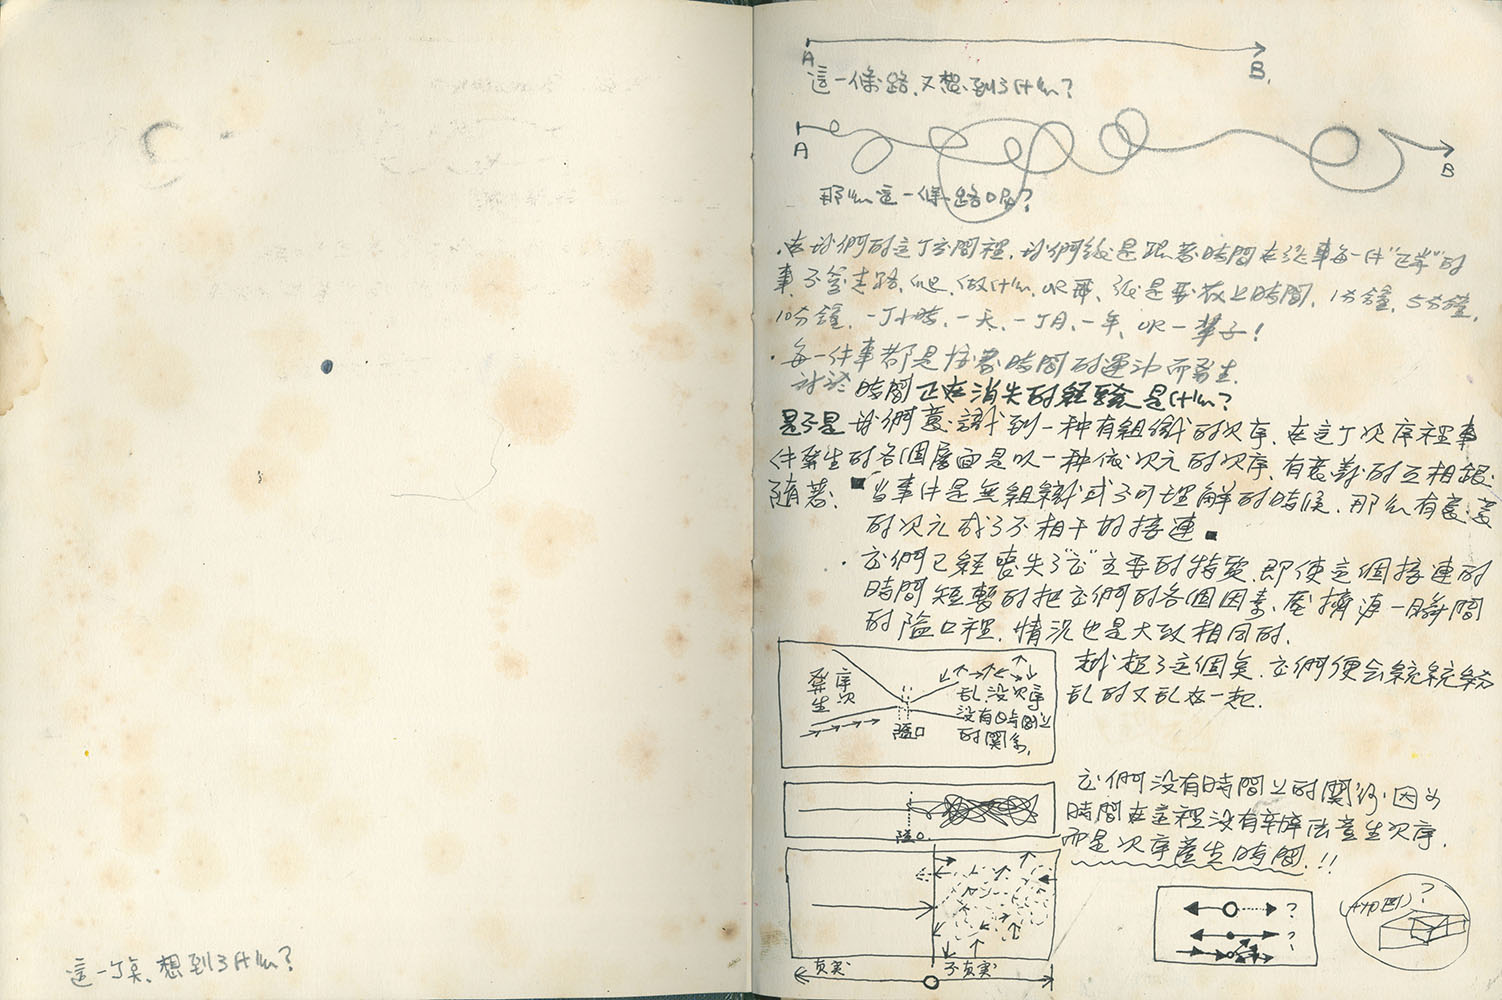 這一丁点、想到了什么?
A
B.
這一條路、又想到了什么?
A
B
那么這一條路呢?
·在我們的這丁空間裡、我們總是跟著時間在從事每一件"迄岸"的
事、不管走路、吧、做什么、呢要、總是要放上時間、1分鐘、5分鐘、
10分鐘、一丁小時、一天、一丁月、一年、呢一輩子!
·每一件事都是隨著時間的運动而發生.
討論 時間正在消失的經驗是什么?
是不是我們意識到一种有組織的次序、在這丁次序裡事
件發生的各個層面是以一种依次元的次序、有意義的互相跟
隨著; ■當事件是無組織或不可理解的時候、那么有意義
的次元成了不相干的接連■
·它們已經喪失了"它"主要的特質、即使這個接連的
時間短暫的把它們的各個因素、壓擠進一瞬間
的隘口裡、情況也是大致相同的、
越超了這個点、它們便会統統紛
乱的又乱在一起.
發生
序次
隘口
乱、没次序
没有時間上
的関係.
隘口.
它們没有時間上的関係、因为
時間在這裡没有辦法產生次序.
而是次序產生時間.!!
真実
不真実
?
?
?
?